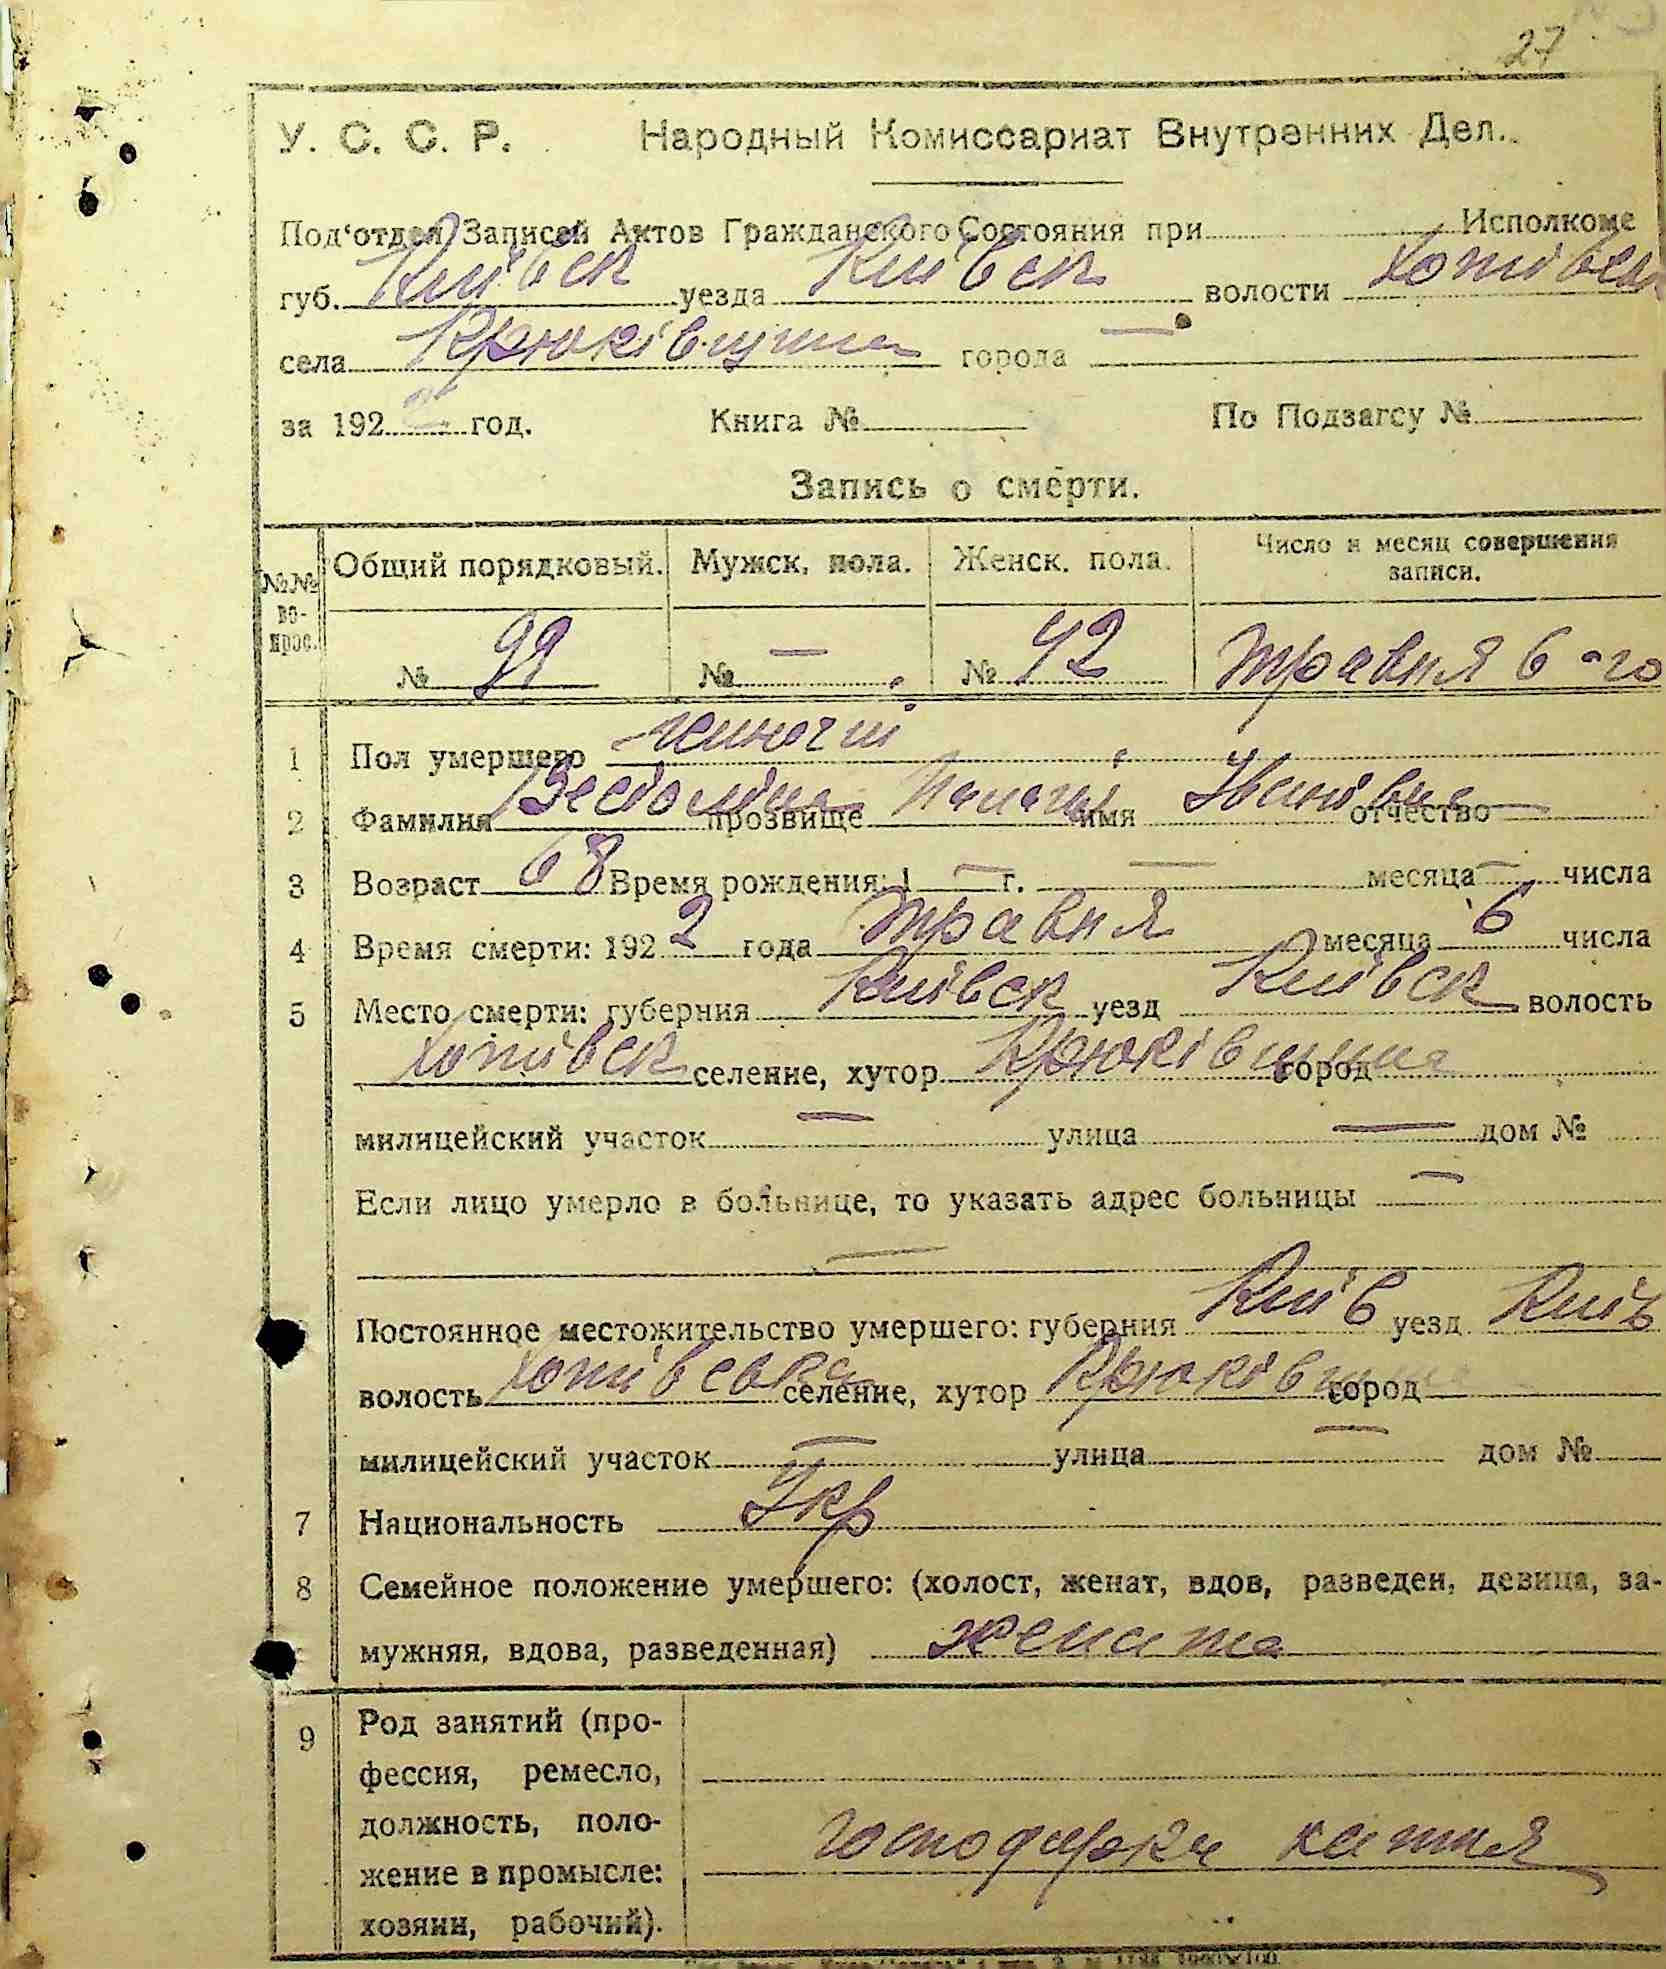 27
У. С. С. Р. Народный Комиссариат Внутренних Дел.
Под'отдел Записей Актов Гражданского Состояния при Исполкоме
губ. Київск уезда Київск волости Хотівск
села Крюківщина города —
за 192 год. Книга № По Подзагсу №
Запись о смерти.
№№ во-прос. Общий порядковый. Мужск. пола. Женск. пола. Число и месяц совершения записи.
№ 99 № — № 42 травня 6-го
1 Пол умершего жиночій
2 Фамилия прозвище имя Іванівна отчество
3 Возраст 68 Время рождения: 1 — г. — месяца — числа
4 Время смерти: 192 2 года травня месяца 6 числа
5 Место смерти: губерния Київск уезд Київск волость
Хотівск селение, хутор Крюківщина город
милицейский участок — улица — дом №
Если лицо умерло в больнице, то указать адрес больницы —
—
Постоянное местожительство умершего: губерния Київ уезд Київ
волость Хотівська селение, хутор Крюківщина город
милицейский участок — улица — дом №
7 Национальность Укр
8 Семейное положение умершего: (холост, женат, вдов, разведен, девица, за-
мужняя, вдова, разведенная) жената
9 Род занятий (про-
фессия, ремесло,
должность, поло-
жение в промысле:
хозяин, рабочий).
господарка